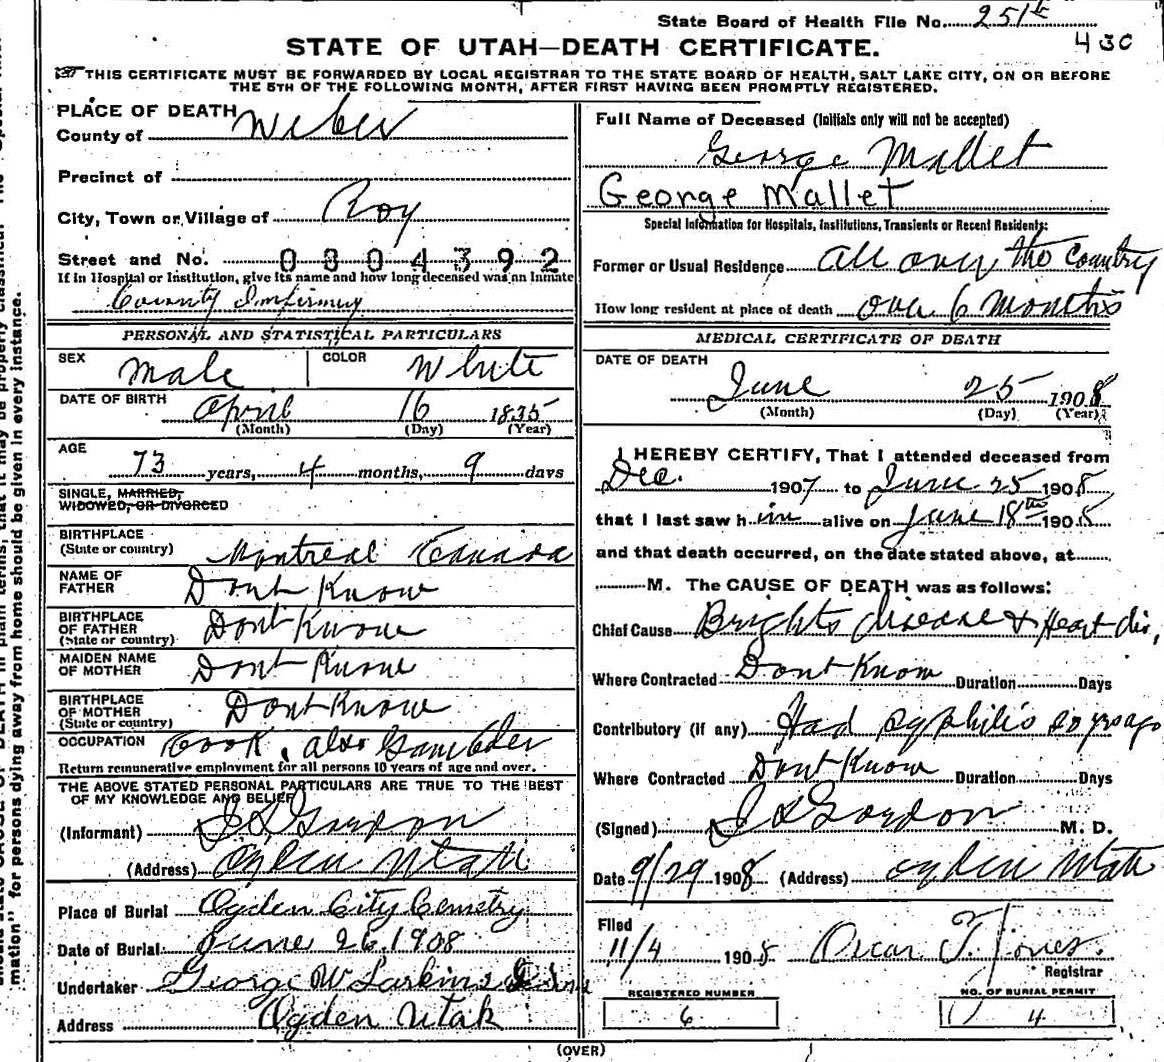 State Board of Health File No. 251
430
STATE OF UTAH—DEATH CERTIFICATE.
THIS CERTIFICATE MUST BE FORWARDED BY LOCAL REGISTRAR TO THE STATE BOARD OF HEALTH, SALT LAKE CITY, ON OR BEFORE
THE 5TH OF THE FOLLOWING MONTH, AFTER FIRST HAVING BEEN PROMPTLY REGISTERED.
PLACE OF DEATH
County of Weber
Precinct of
City, Town or Village of Roy
Street and No. 0304392
If in Hospital or Institution, give its name and how long deceased was an Inmate
County Infirmry
PERSONAL AND STATISTICAL PARTICULARS
SEX Male COLOR White
DATE OF BIRTH April 16 1835
(Month) (Day) (Year)
AGE
73 years, 4 months, 9 days
SINGLE, MARRIED,
WIDOWED, OR DIVORCED
BIRTHPLACE
(State or country) Montreal Canada
NAME OF
FATHER Dont Know
BIRTHPLACE
OF FATHER Dont Know
(State or country)
MAIDEN NAME
OF MOTHER Dont Know
BIRTHPLACE
OF MOTHER Dont Know
(State or country)
OCCUPATION Cook, also Gambler
Return remunerative employment for all persons 10 years of age and over.
THE ABOVE STATED PERSONAL PARTICULARS ARE TRUE TO THE BEST
OF MY KNOWLEDGE AND BELIEF
(Informant) Gordon
(Address) Ogden Utah
Place of Burial Ogden City Cemetry
Date of Burial June 26 1908
Undertaker George W Larkin & Sons
Address Ogden Utah
Full Name of Deceased (Initials only will not be accepted)
George Mallet
George Mallet
Special Information for Hospitals, Institutions, Transients or Recent Residents:
Former or Usual Residence all over the Country
How long resident at place of death over 6 months
MEDICAL CERTIFICATE OF DEATH
DATE OF DEATH
June 25 1908
(Month) (Day) (Year)
I HEREBY CERTIFY, That I attended deceased from
Dec. 1907 to June 25 1908
that I last saw him alive on June 18th 1908
and that death occurred, on the date stated above, at
M. The CAUSE OF DEATH was as follows:
Chief Cause Brights disease & Heart dis,
Where Contracted Dont Know Duration Days
Contributory (if any) Had syphilis yrs ago
Where Contracted Dont Know Duration Days
(Signed) Gordon M. D.
Date 9/29 1908 (Address) Ogden Utah
Filed
11/4 1908 Oscar T. Jones.
Registrar
REGISTERED NUMBER
6
NO. OF BURIAL PERMIT
4
(OVER)